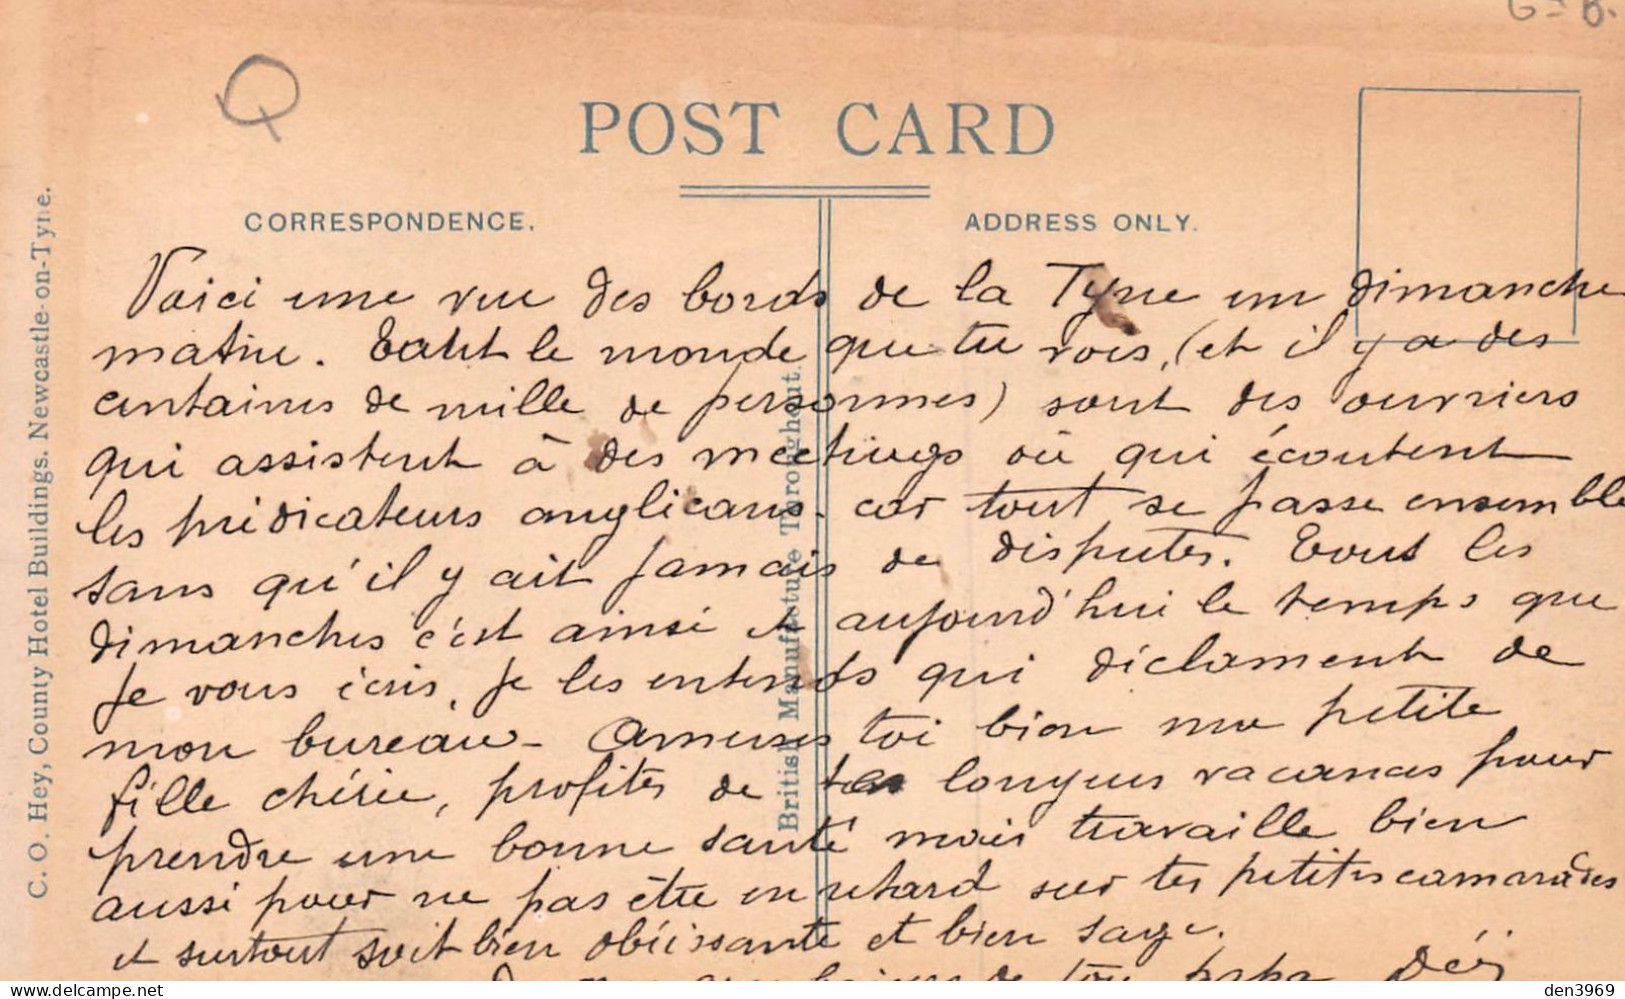 G-B.
POST CARD
CORRESPONDENCE.
ADDRESS ONLY.
C. O. Hey, County Hotel Buildings, Newcastle-on-Tyne.
British Manufacture Throughout.
Voici une vue des bords de la Tyne un dimanche
matin. Tout le monde que tu vois, (et il y a des
centaines de mille de personnes) sont des ouvriers
qui assistent à des meetings ou qui écoutent
les prédicateurs anglicans. car tout se passe ensemble
sans qu'il y ait jamais de disputes. Tous les
dimanches c'est ainsi et aujourd'hui le temps que
je vous écris, je les entends qui déclament de
mon bureau - Amuses toi bien ma petite
fille chérie, profites de tes longues vacances pour
prendre une bonne santé mais travaille bien
aussi pour ne pas être en retard sur tes petites camarades
et surtout soit bien obéissante et bien sage.
baisers de ton papa
den3969